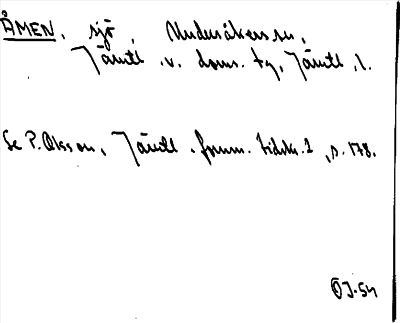 ÅMEN, sjö, Undersåkers sn,
Jämtl. v. doms. tg, Jämtl. l.
Se P. Olsson, Jämtl. fornm. tidskr. 2, s. 178.
ÖJ-54